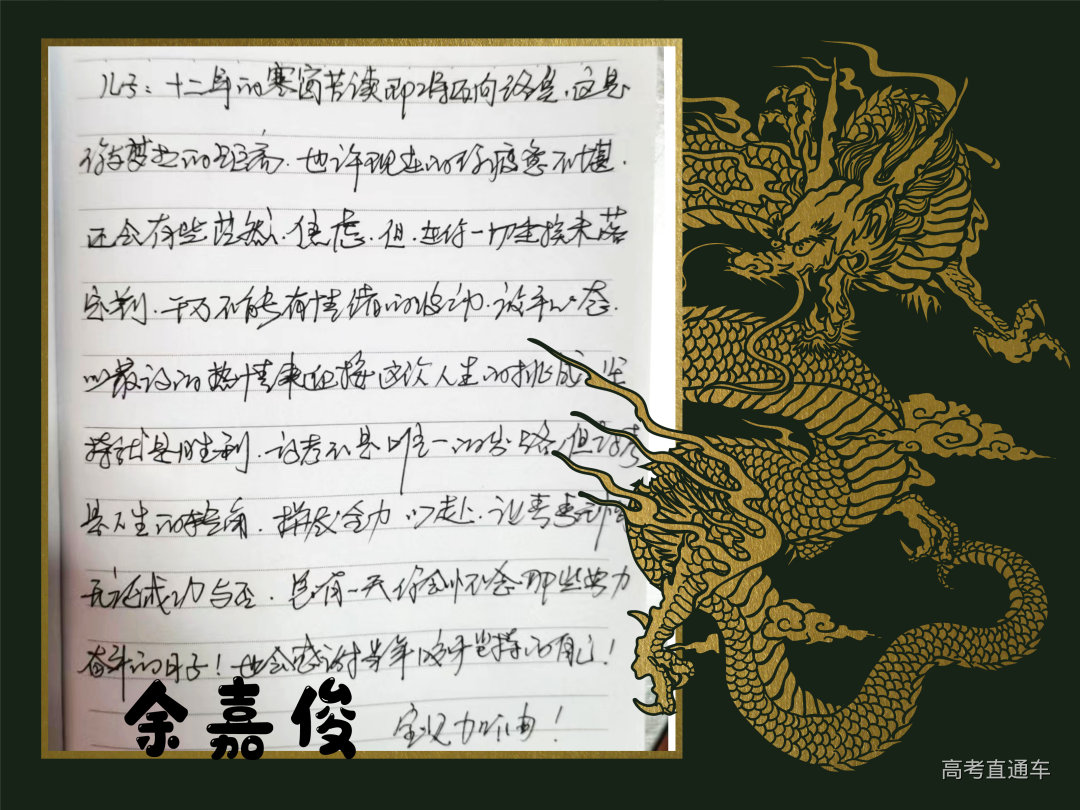 儿子：十二年的寒窗苦读即将面向终点，这是
你梦想的征途，也许现在的你疲惫不堪，
还会有些茫然、焦虑，但，在你一切尘埃未落
定前，千万不能有情绪的波动，放平心态，
以最诚的热情来迎接这次人生的挑战，坚
持就是胜利，高考不是唯一的出路，但高考
是人生的转角，拼尽全力以赴，让青春无悔
无论成功与否，总有一天你会怀念那些努力
奋斗的日子！也会感谢当年咬牙坚持的自己！
加油！
余嘉俊
高考直通车